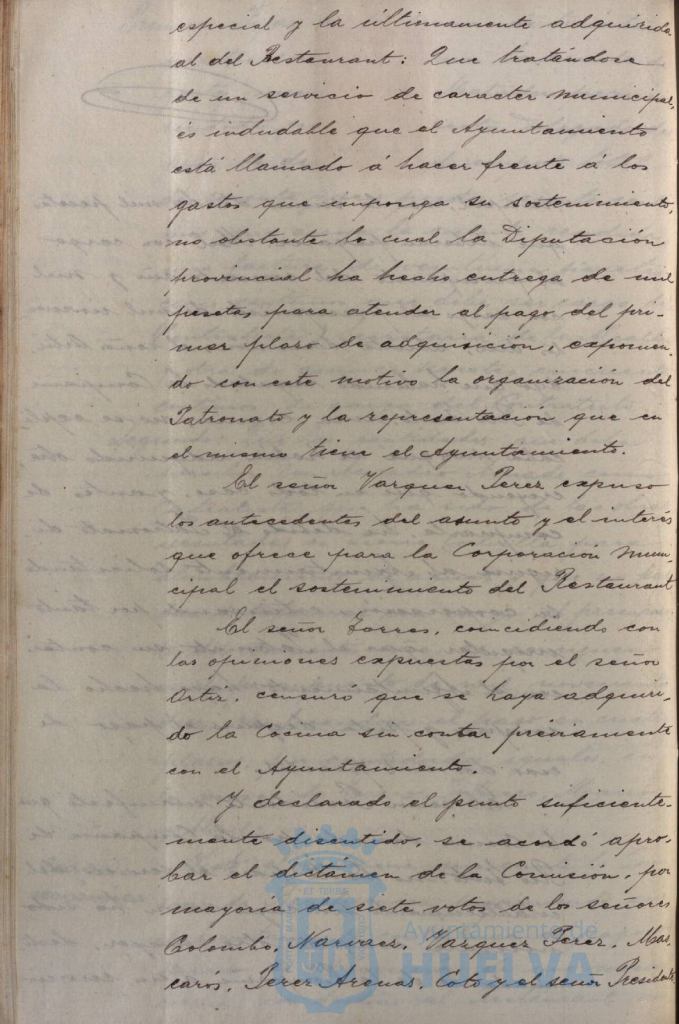 especial y la últimamente adquirida
al del Restaurant: Que tratándose
de un servicio de caracter municipal,
és indudable que el Ayuntamiento
está llamado á hacer frente á los
gastos que imponga su sostenimiento,
no obstante lo cual la Diputación
provincial ha hecho entrega de mil
pesetas para atender al pago del pri-
mer plazo de adquisición, exponien-
do con este motivo la organización del
Patronato y la representación que en
el mismo tiene el Ayuntamiento.
El señor Vazquez Perez expuso
los antecedentes del asunto y el interés
que ofrece para la Corporación muni-
cipal el sostenimiento del Restaurant
El señor Torres, coincidiendo con
las opiniones expuestas por el señor
Ortiz, censuró que se haya adquiri-
do la Cocina sin contar préviamente
con el Ayuntamiento.
Y declarado el punto suficiente-
mente discutido, se acordó apro-
bar el dictámen de la Comisión, por
mayoria de siete votos de los señores
Colombo, Narvaez, Vazquez Perez, Mas-
carós, Perez Arenas, Coto y el señor Presidente
Ayuntamiento de
HUELVA